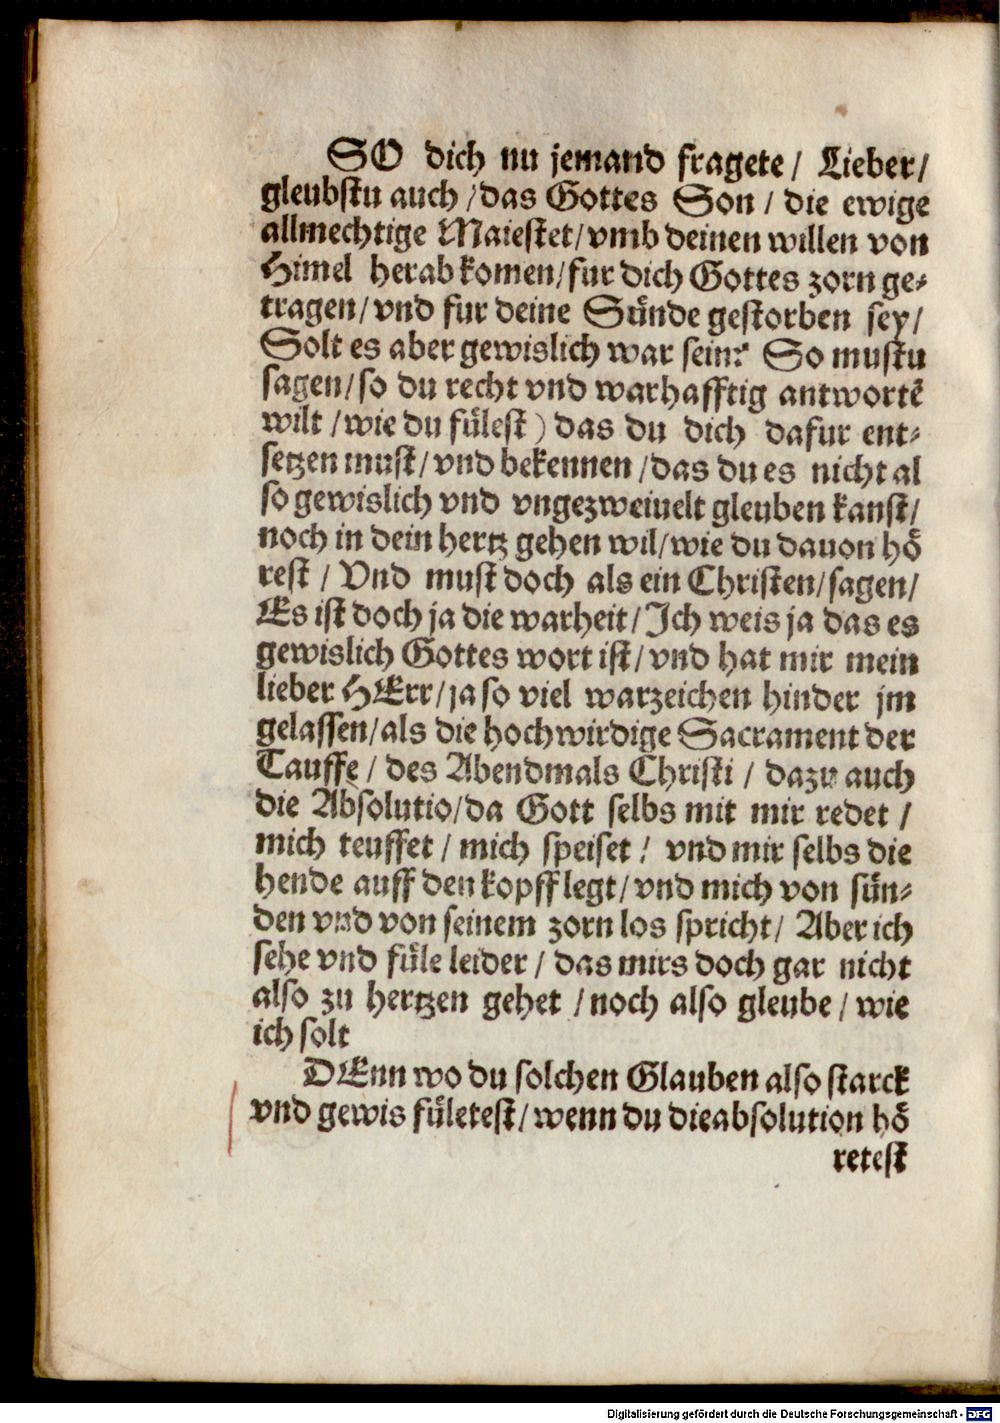 SO dich nu jemand fragete / Lieber /
gleubstu auch / das Gottes Son / die ewige
allmechtige Maiestet / vmb deinen willen von
Himel herab komen / fur dich Gottes zorn ge⸗
tragen / vnd fur deine Sünde gestorben sey /
Solt es aber gewislich war sein? So mustu
sagen / so du recht vnd warhafftig antwortē
wilt / wie du fülest ) das du dich dafur ent⸗
setzen must / vnd bekennen / das du es nicht al
so gewislich vnd vngezweiuelt gleuben kanst /
noch in dein hertz gehen wil / wie du dauon hö
rest / Vnd must doch als ein Christen / sagen /
Es ist doch ja die warheit / Ich weis ja das es
gewislich Gottes wort ist / vnd hat mir mein
lieber HErr / ja so viel warzeichen hinder jm
gelassen / als die hochwirdige Sacrament der
Tauffe / des Abendmals Christi / dazu auch
die Absolutio / da Gott selbs mit mir redet /
mich teuffet / mich speiset / vnd mir selbs die
hende auff den kopff legt / vnd mich von sün⸗
den vnd von seinem zorn los spricht / Aber ich
sehe vnd füle leider / das mirs doch gar nicht
also zu hertzen gehet / noch also gleube / wie
ich solt
DEnn wo du solchen Glauben also starck
vnd gewis fületest / wenn du die absolution hö
retest
Digitalisierung gefördert durch die Deutsche Forschungsgemeinschaft - DFG